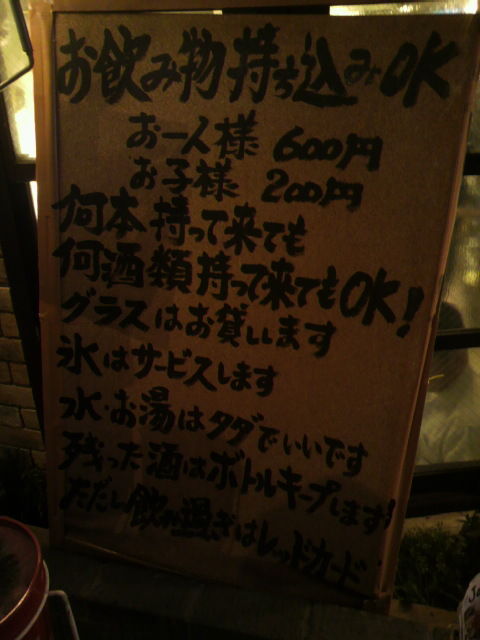 お飲み物持ち込みOK
お一人様 600円
お子様 200円
何本持って来ても
何酒類持って来てもOK!
グラスはお貸しします
氷はサービスします
水・お湯はタダでいいです
残った酒はボトルキープします!
ただし飲み過ぎはレッドカード